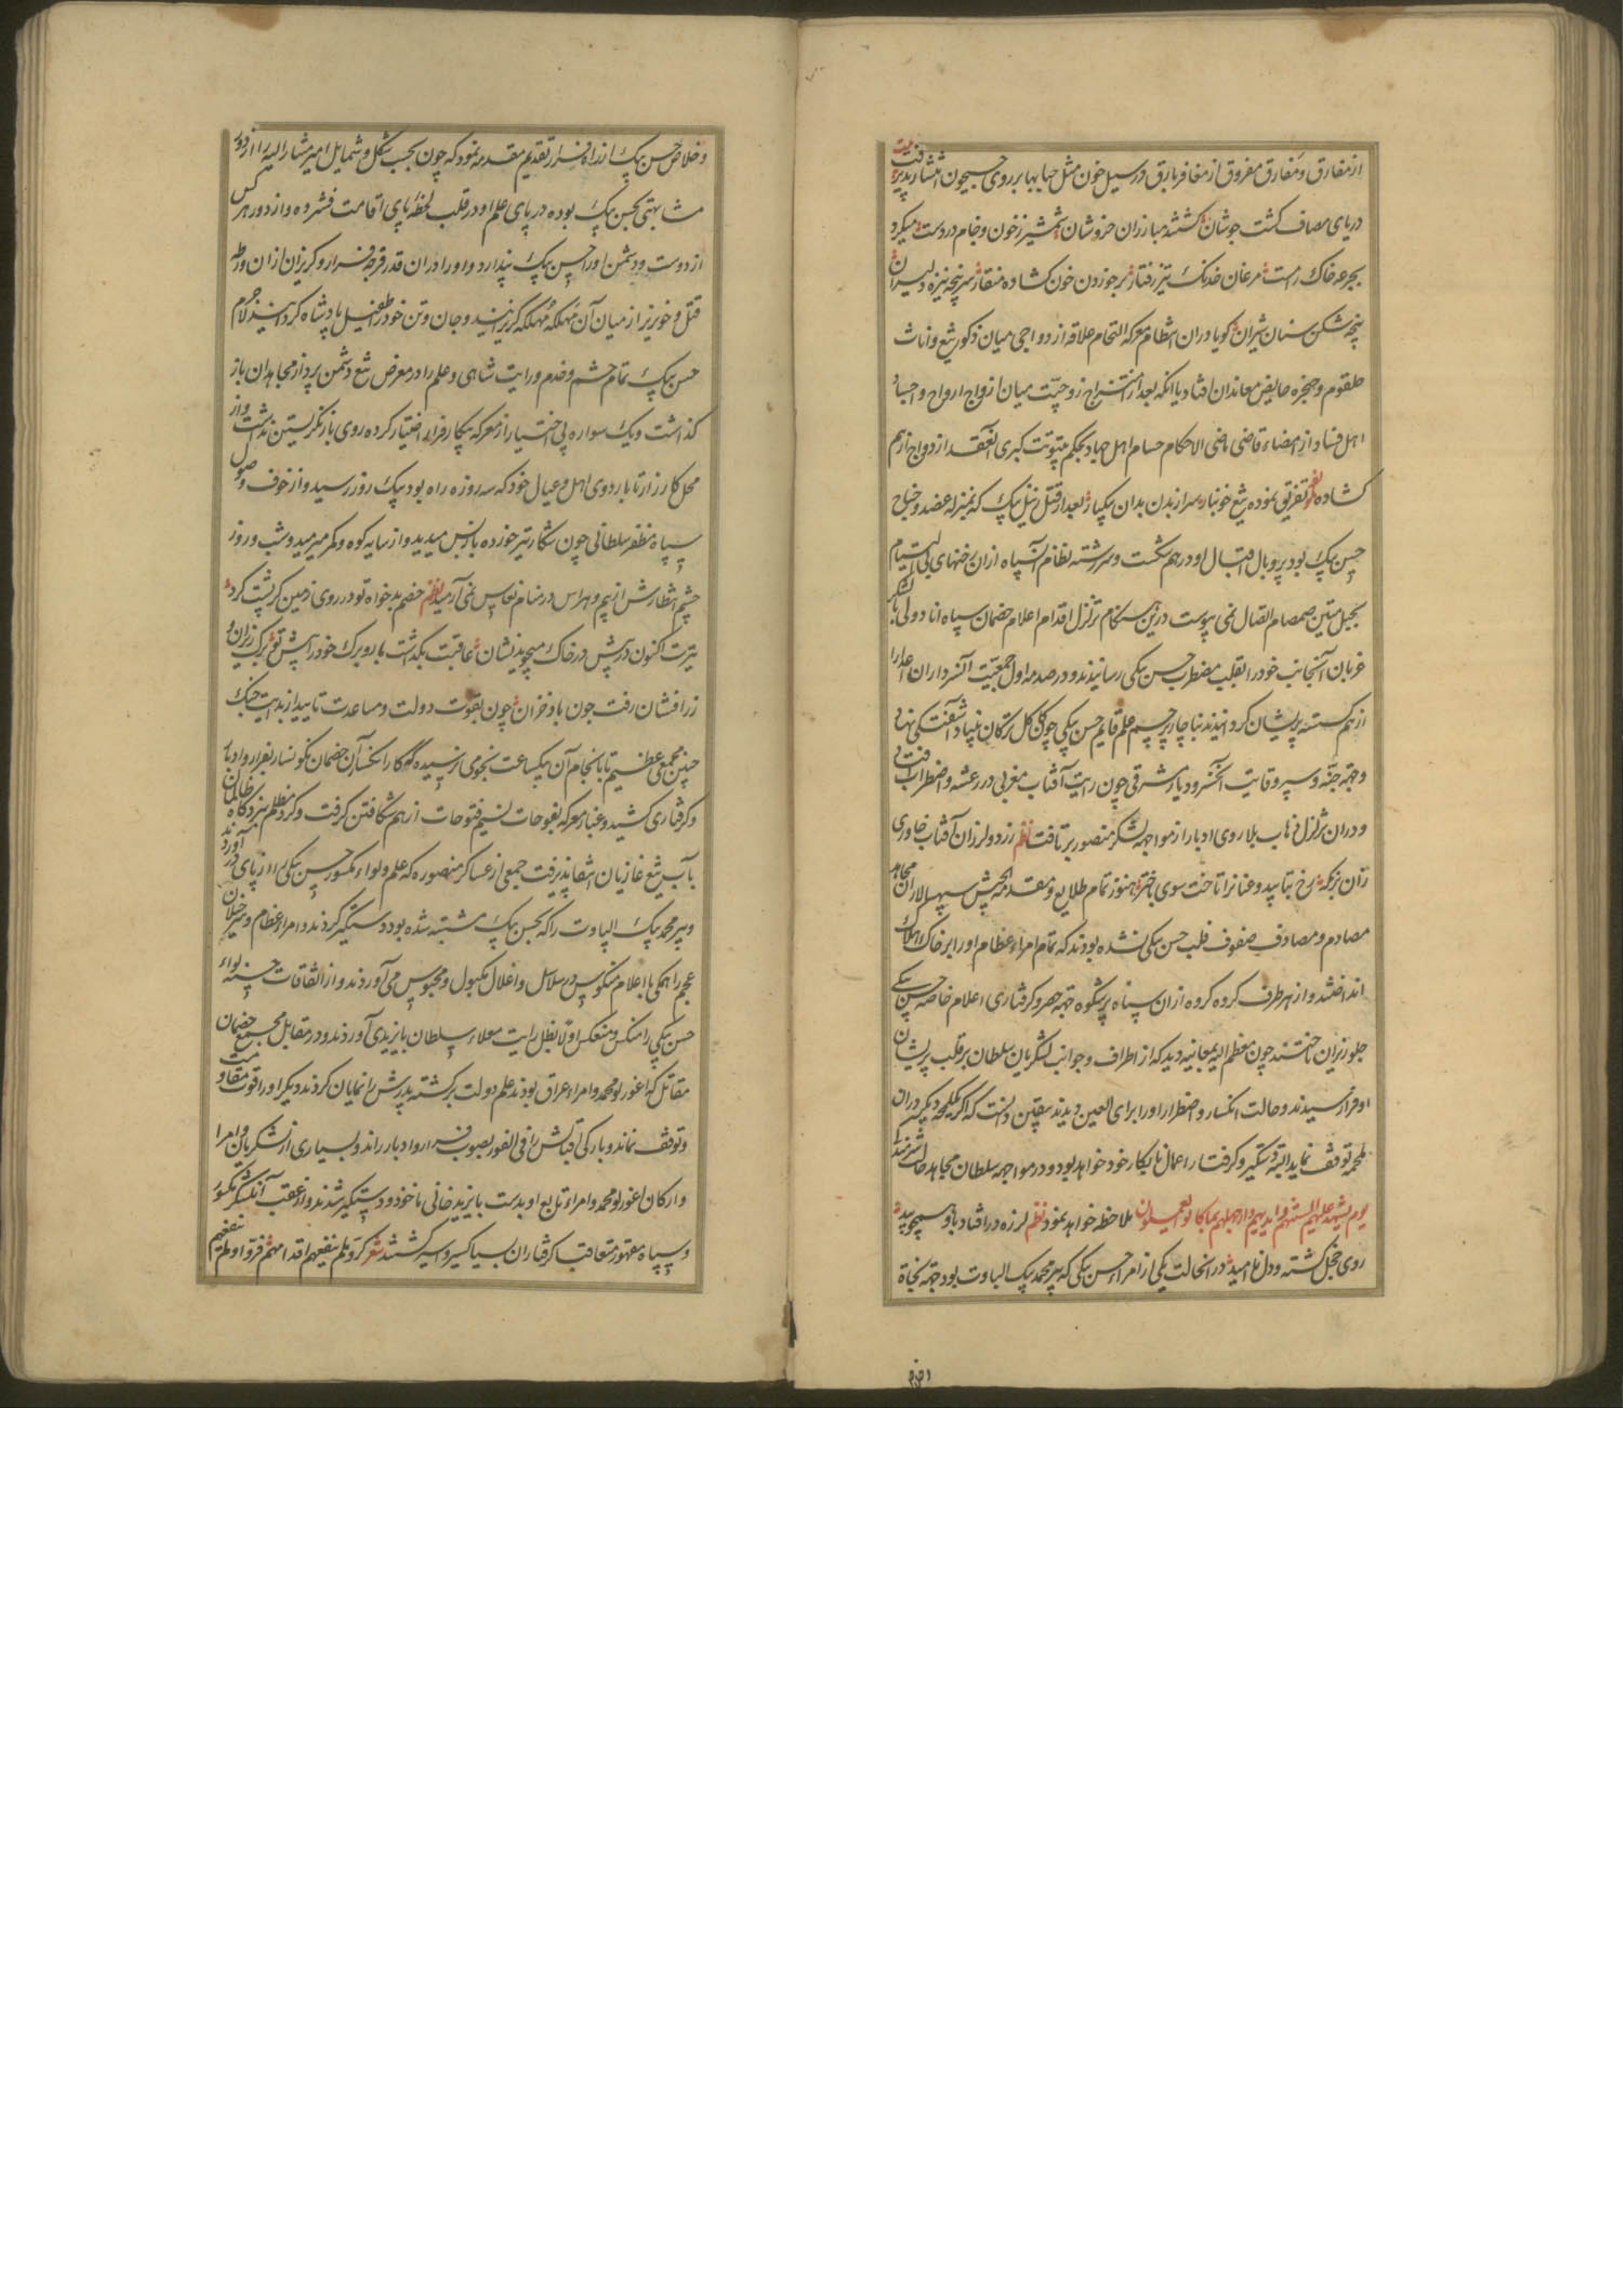 از مفارق و مفارق مفروق از مغافر بارق در سیل خون مثل حبابها بر روی جیحون انتشار پذیرفت
دریای مصاف گشت جوشان گشتند مبارزان خروشان شمشیر ز خون و جام در دست میکرد
بجرعه خاک را مست مرغان خدنک تیز رفتار بر خوردن خون کشاده منقار سر پنجه نیزه دلیران
پنجه شکن سنان شیران کویا دران انتظام معرکه التحام علاقه ازدواجی میان ذکور تیغ و اناث
حلقوم و حنجره معاندان افتاد یا انکه بعد از امتزاج زوجیت میان ازواج ارواح و اجساد
اهل فساد از امضاء قاضی ماضی الاحکام حسام اهل جهاد بحکم کبری العقد ازدواج از هم
کشاده تفریق نموده تیغ خونبار سر از بدن بدان پیکار بعد از قتل زینل بیک که بمنزله عضد و جناح
حسن بیک بود پر و بال اقبال او درهم شکست و سررشته نظام آن سپاه ازان رخنهای بی التیام
بحبل متین صمصام اتصال نمی پیوست درین هنکام تزلزل اقدام اعلام خصمان سپاه اناطولی با لشکر
عزبان آنجانب خود را بقلب مضطرب حسن بیکی رسانیدند و در صدمه اول جمعیت آن سرداران اعدا را
از هم کسسته پریشان کردانیدند بناچار پرچم علم قایم حسن بیکی چون کاکل ترکان بنیاد آشفتکی نهاد
و جهه جنه و سپر وقایت آن خسرو دیار مشرقی چون رایت آفتاب مغربی در رعشه و اضطراب افتاد
و دران تزلزل ذهاب بلا روی ادبار از مواجهه لشکر منصور بر تافت نظم زرد و لرزان آفتاب خاوری
زان بزمکه رخ بتابید و عنانرا تاخت سوی باختر هنوز تمام طلایع و مقدمة الجیش سپهسالاران مجاهد
مصادم و مصادف صفوف قلب حسن بیکی نشده بودند که تمام امراء عظام او را بر خاک هلاک
انداختند و از هر طرف کروه کروه ازان سپاه پرشکوه جهه حصر و کرفتاری اعلام خاصه حسن بیکی
جلوریزان تاختند چون معظم الیه بمعاینه دید که از اطراف و جوانب لشکریان سلطان بر قلب پریشان
او فراز رسیدند و حالت انکسار و اضطرار او را برای العین دیدند بیقین دانست که اکر یکلمحه دیکر دران
ملحمه توقف نماید البته دستکیر و کرفتار اعمال نابکار خود خواهد بود و در مواجهه سلطان مجاهد حالت
یوم تشهد علیهم السنتهم و ایدیهم و ارجلهم بما کانوا یعملون ملاحظه خواهد نمود نظم لرزه در افتاد باو همچو بید
روی خجل کشته و دل نا امید درانحالت یکی از امراء حسن بیکی که پیر محمد بیک الپاوت بود جهه نجاة
و خلاص حسن بیک از راه فرار تقدیم مقدمه نمود که چون بحسب شکل و شمایل امیر مشار الیه را از دور
مشابهتی بحسن بیک بوده در پای علم او در قلب لحظه پای اقامت فشرده و از دور هر کس
از دوست و دشمن او را حسن بیک پندارد و او را دران قدر فرجه فرار و کریزان ازان ورطه
قتل و خونریز از میان آن مهلکه مهلکه کریزانید و جان و تن خود را طفیل پادشاه کردانید
حسن بیک تمام حشم و خدم و رایت شاهی و علم را در معرض تیغ دشمن پرداز مجاهدان باز
کذاشت و یک سواره بی اختیار از معرکه پیکار فرار اختیار کرده روی باز نکریستن نداشت و از
محل کارزار تا باردوی اهل و عیال خود که سه روزه راه بود بیک روز رسید و از خوف وصول
سپاه مظفر سلطانی چون شکار تیر خورده باز پس میدید و از سایه کوه و کمر میرمید و شب و روز
چشم انتظارش از بیم و هراس در منام نعاس نمی آرمید نظم خصم بدخواه تو در روی زمین کر پشت کرد
تیرت اکنون در پیش در خاک میجوید نشان عاقبت بکذاشت بار و برک خود را پیش تو برک ریزان و
زر افشان رفت چون باد خزان چون بقوت دولت و مساعدت تایید از بدایت جنک
چنین مجمعی عظیم تا بانجام آن بیکساعت نجومی نرسیده که کار انکسار آن خصمان نکونسار بفرار و ادبار
و کرفتاری کشید و غبار معرکه بفوحات نسیم فتوحات از هم شکافتن کرفت و کرد مظلم نبردکاه ظالمان
بآب تیغ غازیان انتفا پذیرفت جمعی از عساکر منصوره که علم و لواء مکسور حسن بیکی را از پای در آوردند
و پیر محمد بیک الپاوت را که بحسن بیک مشتبه شده بود دستکیر کردند و امراء عظام و سرخیلان
عجم را همکی با اعلام منکوس در سلاسل و اغلال مکبول و محبوس می آوردند و از اتفاقات حسنه لواء
حسن بیکی را منکس و منعکس اولا بظل رایت معلاء سلطان بایزیدی آوردند و در مقابل مجمع خصمان
مقاتل که اغورلو محمد و امراء عراق بودند علم دولت برکشته پدرش را نمایان کردند دیکر او را قوت مقاومت
و توقف نماند و بارکی اقبالش را فی الفور بصوب فرار و ادبار راند و بسیاری از لشکریان و امرا
و ارکان اغورلو محمد و امراء تابع او بدست بایزید خانی ماخوذ و دستکیر شدند و از عقب آن لشکر مکسور
و سپاه مقهور متعاقب کرفتاران بسیار کسیر و اسیر کشتند شعر کرو فلم ینفعهم اقدامهم فروا و لم ینفعهم